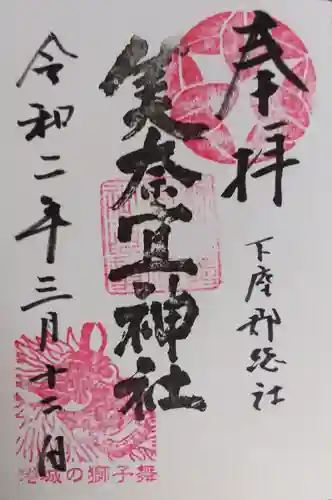 奉拝
下座郡総社
美奈宜神社
令和二年三月十二日
の獅子舞